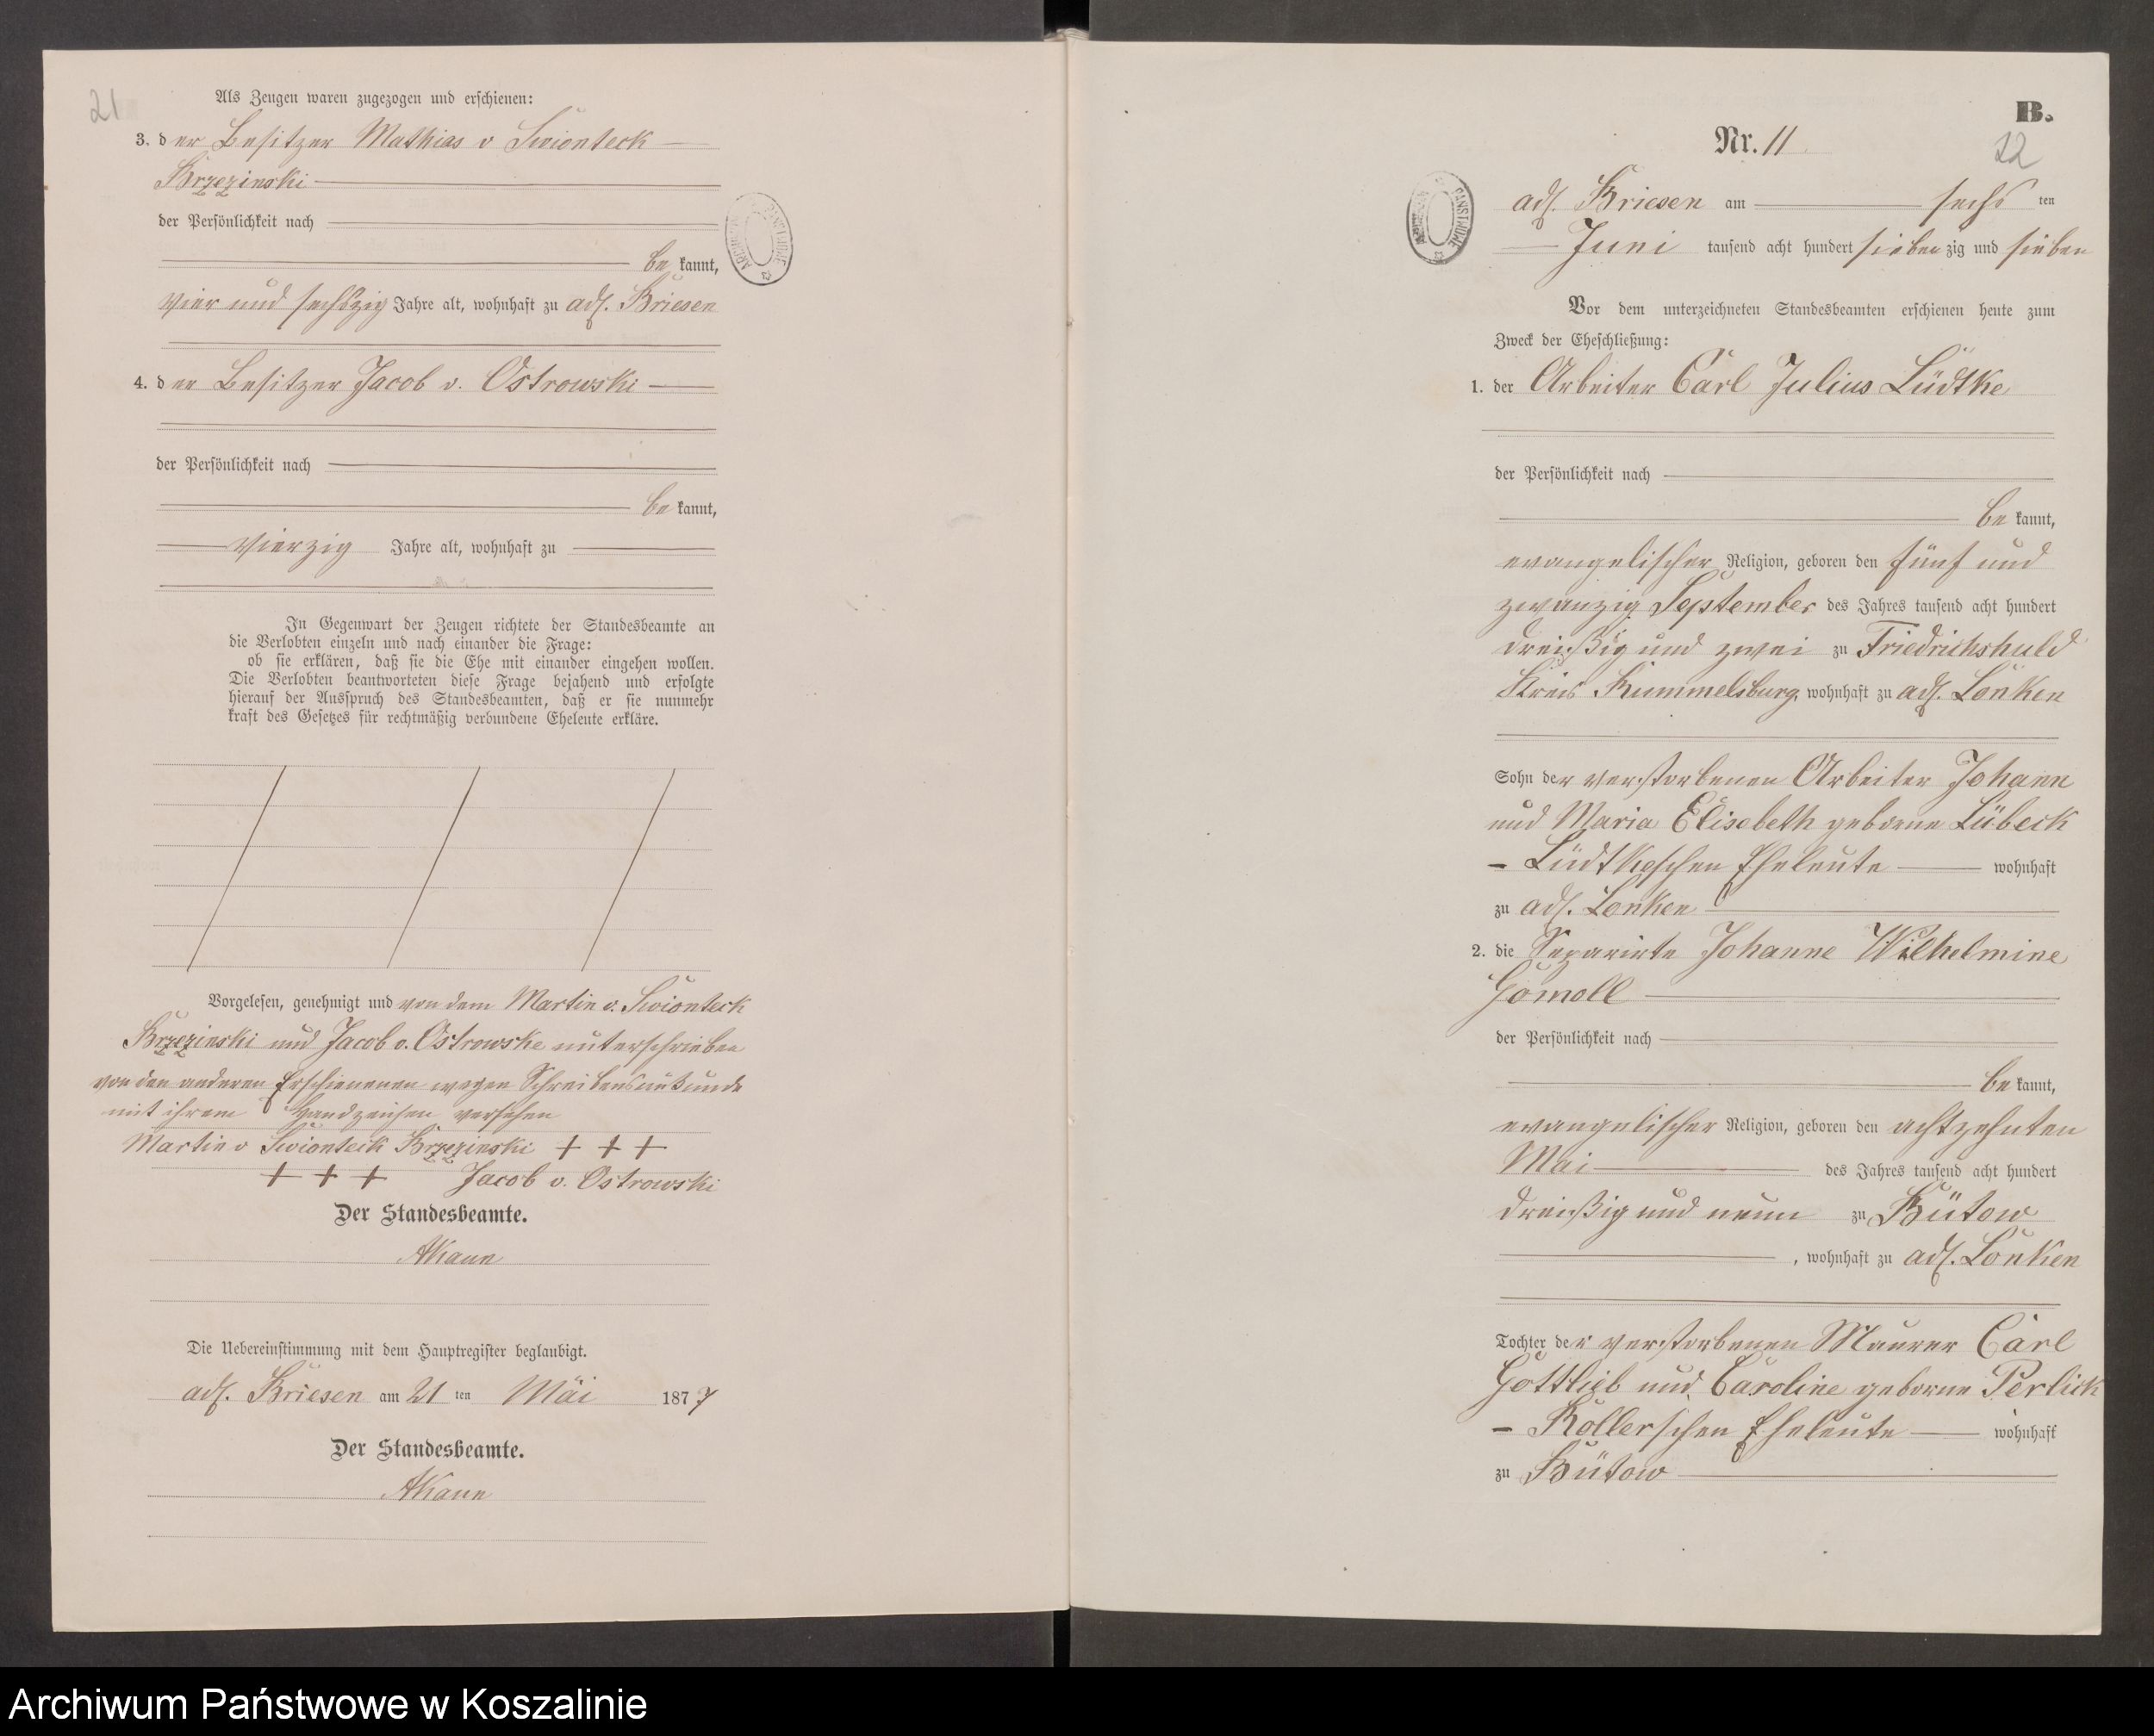 21
Als Zeugen waren zugezogen und erschienen:
3. der Besitzer Mathias v Swionteck
Brzezinski
der Persönlichkeit nach
be kannt,
vier und sechszig Jahre alt, wohnhaft zu adl. Briesen
4. der Besitzer Jacob v. Ostrowski
der Persönlichkeit nach
be kannt,
vierzig Jahre alt, wohnhaft zu
In Gegenwart der Zeugen richtete der Standesbeamte an
die Verlobten einzeln und nach einander die Frage:
ob sie erklären, daß sie die Ehe mit einander eingehen wollen.
Die Verlobten beantworteten diese Frage bejahend und erfolgte
hierauf der Ausspruch des Standesbeamten, daß er sie nunmehr
kraft des Gesetzes für rechtmäßig verbundene Eheleute erkläre.
Vorgelesen, genehmigt und von dem Martin v. Swionteck
Brzezinski und Jacob v. Ostrowske unterschrieben
von den anderen Erschienenen wegen Schreibensunkunde
mit ihrem Handzeichen versehen
Martin v Swionteck Brzezinski + + +
+ + + Jacob v. Ostrowski
Der Standesbeamte.
Die Uebereinstimmung mit dem Hauptregister beglaubigt.
adl. Briesen am 21 ten Mai 1877
Der Standesbeamte.
B.
Nr. 11
22
adl. Briesen am sechs ten
Juni tausend acht hundert siebenzig und sieben
Vor dem unterzeichneten Standesbeamten erschienen heute zum
Zweck der Eheschließung:
1. der Arbeiter Carl Julius Lüdtke
der Persönlichkeit nach
be kannt,
evangelischer Religion, geboren den fünf und
zwanzig September des Jahres tausend acht hundert
dreißig und zwei zu Friedrichshuld
Kreis Rummelsburg, wohnhaft zu adl. Lonken
Sohn der verstorbenen Arbeiter Johann
und Maria Elisabeth geborne Lübeck
- Lüdtkeschen Eheleute wohnhaft
zu adl. Lonken
2. die Separirte Johanne Wilhelmine
Gomoll
der Persönlichkeit nach
be kannt,
evangelischer Religion, geboren den achtzehnten
Mai des Jahres tausend acht hundert
dreißig und neun zu Bütow
, wohnhaft zu adl. Lonken
Tochter der verstorbenen Maurer Carl
Gottlieb und Caroline geborne Perlick
- Rollerschen Eheleute wohnhaft
zu Bütow
Archiwum Państwowe w Koszalinie